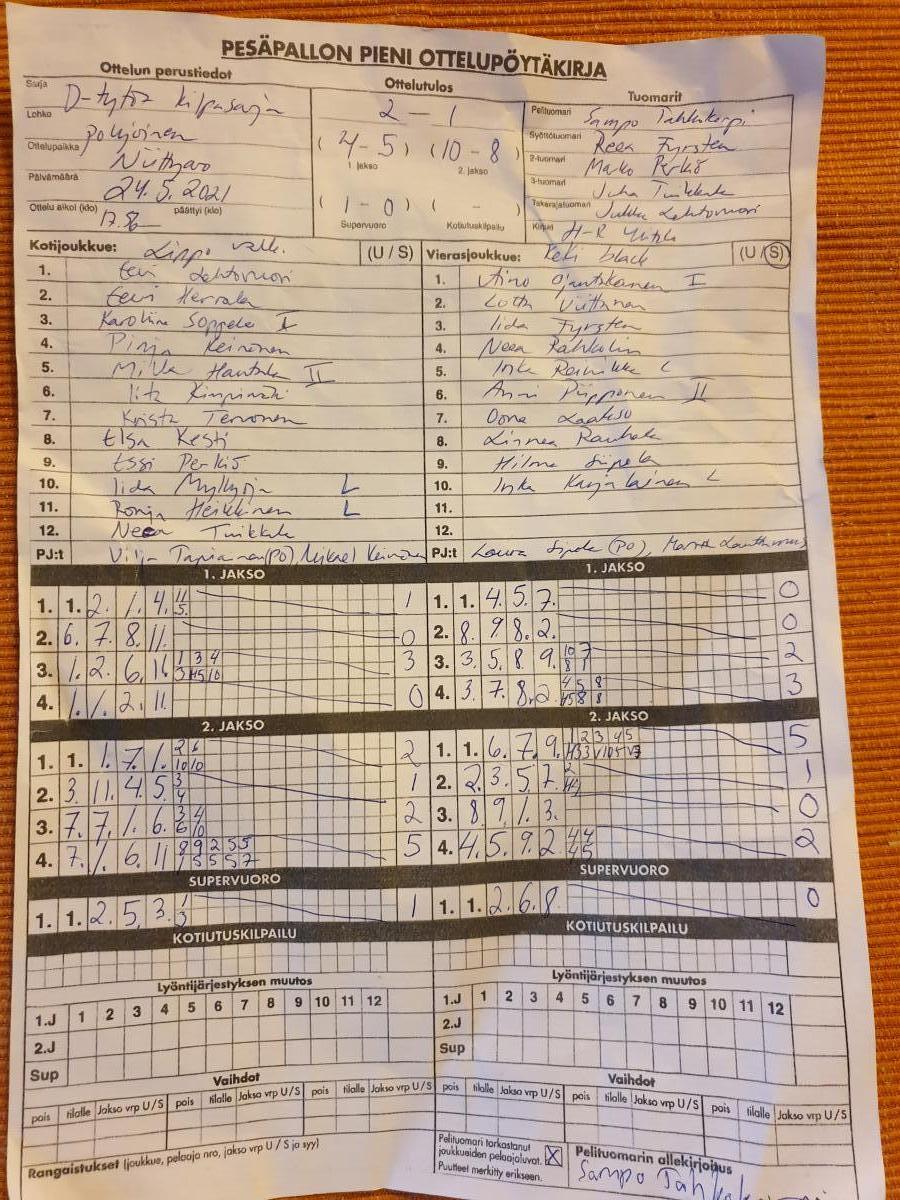 PESÄPALLON PIENI OTTELUPÖYTÄKIRJA
Ottelun perustiedot
Ottelutulos
Tuomarit
Sarja D-tytöt kilpasarja
Lohko Pohjoinen
Ottelupaikka
Päivämäärä 24.5.2021
Ottelu alkoi (klo) päättyi (klo)
2 - 1
( 4 - 5 ) ( 10 - 8 )
1. jakso 2. jakso
( 1 - 0 ) ( - )
Supervuoro Kotiutuskilpailu
Pelituomari Sampo Tahkokorpi
Syöttötuomari Reea Fyrsten
2-tuomari Marko Perkiö
3-tuomari Juha Tuikkala
Takarajatuomari Jukka Lehtovuori
Kirjuri H-R
Kotijoukkue: Lippo (U / S)
1. Eevi Lehtovuori
2. Eevi Herrala
3. Karoliina Soppela I
4. Pinja Keinonen
5. Milla II
6. Iita
7. Krista Tervonen
8. Elsa Kesti
9. Essi Perkiö
10. Iida Myllyoja L
11. Ronja Heikkinen L
12. Neea Tuikkala
PJ:t (PO), Mikael Keinonen
Vierasjoukkue: black (U / S)
1. Aino I
2. Lotta Viittanen
3. Iida Fyrsten
4. Neea
5. Inka L
6. Anni Piipponen II
7. Oona Laakso
8. Linnea Rauhala
9. Hilma Sipola
10. Inka Karjalainen L
11.
12.
PJ:t Laura Sipola (PO),
1. JAKSO
1. 1. 2. 1. 4. 11 5. 1
2. 6. 7. 8. 11. 0
3. 1. 2. 6. 11. 1 3 4 3
4. 1. 1. 2. 11. 0
1. JAKSO
1. 1. 4. 5. 7. 0
2. 8. 9 8. 2. 0
3. 3. 5. 8. 9. 10 7 8 1 2
4. 3. 7. 8. 2 4 5 8 3
2. JAKSO
1. 1. 1. 7. 1. 2 6 10 10 2
2. 3. 11. 4. 5. 3 4 1
3. 7. 7. 1. 6. 3 4 6 10 2
4. 7. 1. 6. 11 9 9 2 5 5 1 5 5 5 7 5
2. JAKSO
1. 1. 6. 7. 9. 1 2 3 4 5 5
2. 2. 3. 5. 7. 2 1
3. 8 9. 1. 3. 0
4. 4. 5. 9. 2 4 4 4 5 2
SUPERVUORO
1. 1. 2. 5. 3. 1 3 1
SUPERVUORO
1. 1. 2. 6. 8. 0
KOTIUTUSKILPAILU
KOTIUTUSKILPAILU
Lyöntijärjestyksen muutos
1.J 1 2 3 4 5 6 7 8 9 10 11 12
2.J
Sup
Lyöntijärjestyksen muutos
1.J 1 2 3 4 5 6 7 8 9 10 11 12
2.J
Sup
Vaihdot
pois tilalle Jakso vrp U / S pois tilalle Jakso vrp U / S pois tilalle Jakso vrp U / S
Vaihdot
pois tilalle Jakso vrp U / S pois tilalle Jakso vrp U / S pois tilalle Jakso vrp U / S
Rangaistukset (joukkue, pelaaja nro, jakso vrp U / S ja syy)
Pelituomari tarkastanut
joukkueiden pelaajaluvat. X
Puutteet merkitty erikseen.
Pelituomarin allekirjoitus
Sampo